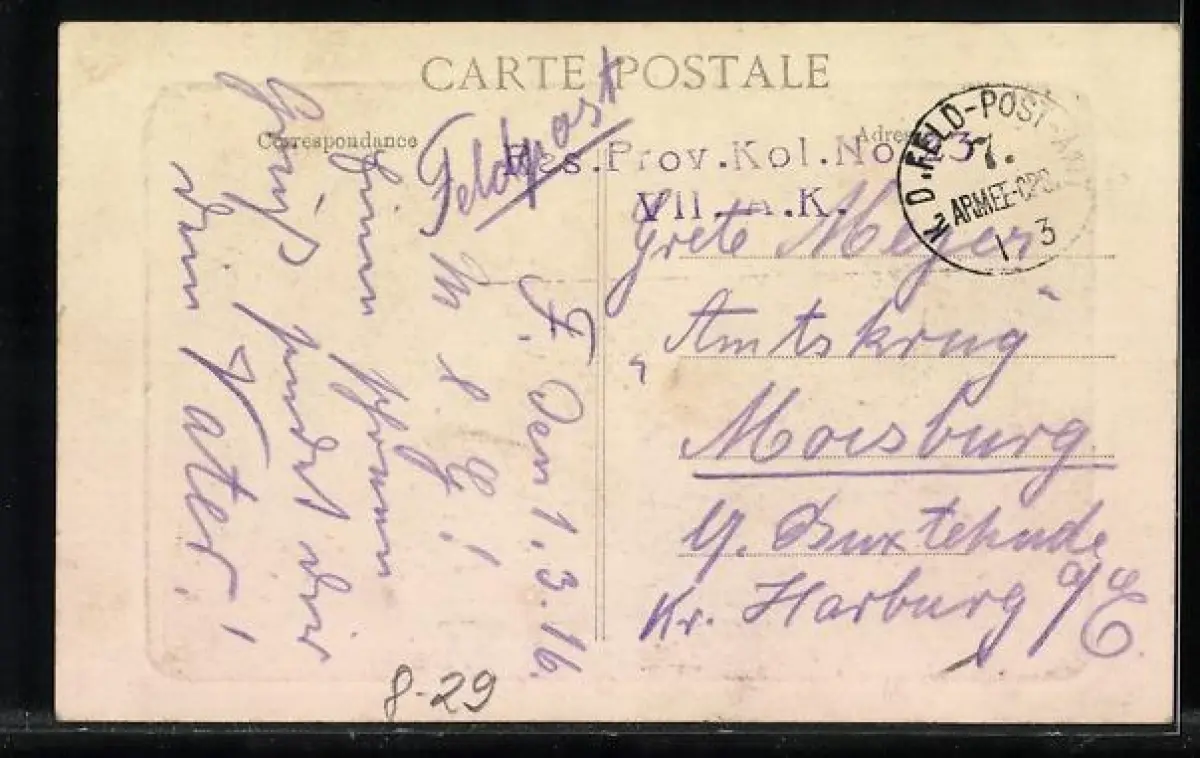 CARTE POSTALE
Correspondance
Adres
Feldpost
Res. Prov. Kol. No 23
VII. A. K.
K. D. FELD-POST-
7.
ARMEE-CPS.
1 3
F. Den 1.3.16.
M. L. G.!
Einen schönen
Gruß sendet dir
dein Vater!
Grete Meyer
„Amtskrug“
Moisburg
b. Buxtehude
Kr. Harburg a/E.
8-29